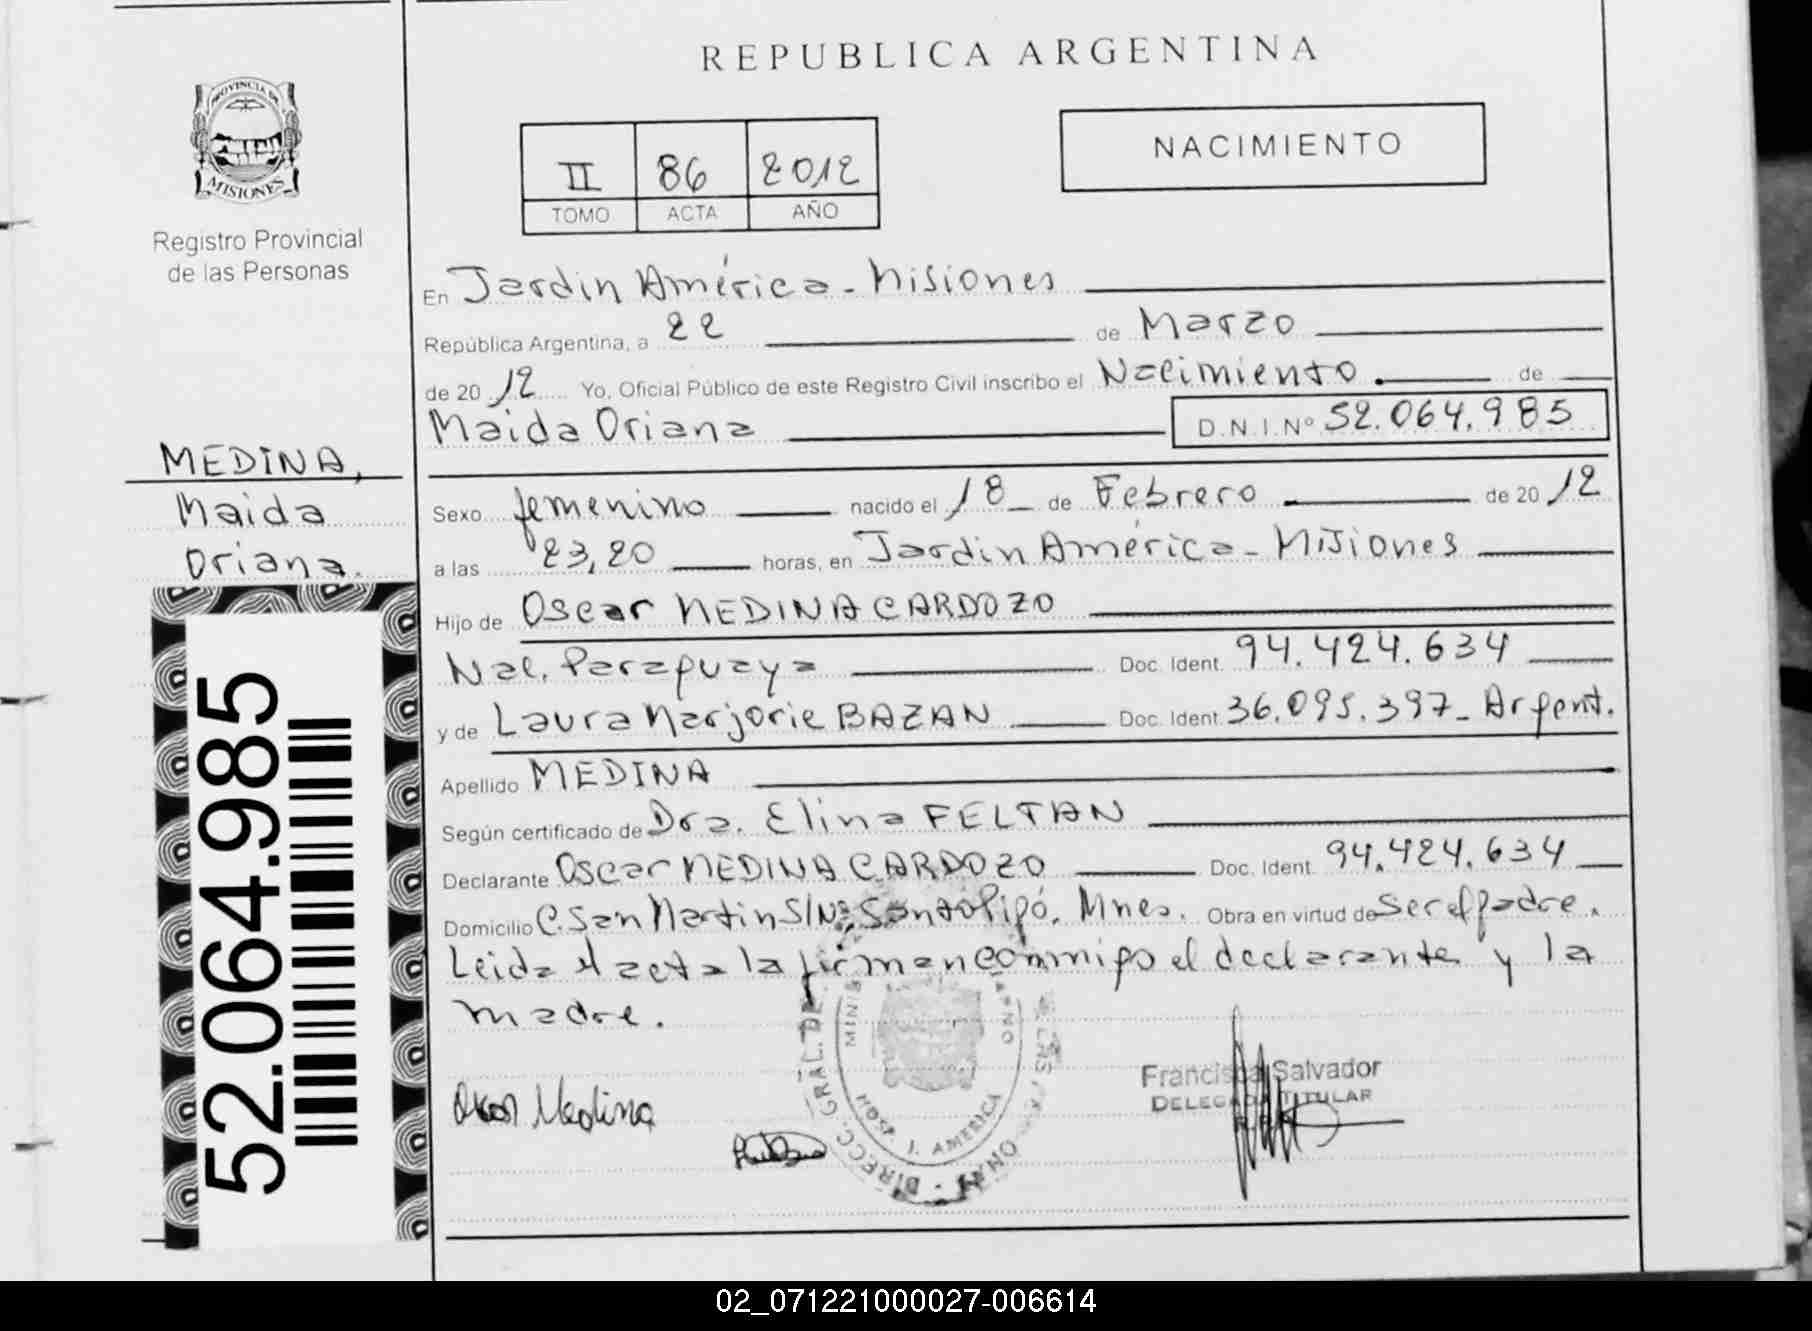 REPUBLICA ARGENTINA
PROVINCIA DE
MISIONES
Registro Provincial
de las Personas
II 86 2012
TOMO ACTA AÑO
NACIMIENTO
En Jardin América - Misiones
República Argentina, a 22 de Marzo
de 2012 Yo, Oficial Público de este Registro Civil inscribo el Nacimiento de
Maida Oriana D.N.I.Nº 52.064.985
MEDINA,
Maida
Oriana.
Sexo femenino nacido el 18 de Febrero de 2012
a las 23,20 horas, en Jardin América - Misiones
Hijo de Oscar MEDINA CARDOZO
Nac. Paraguaya Doc. Ident. 94.424.634
y de Laura Marjorie BAZAN Doc. Ident. 36.095.397 - Argent.
Apellido MEDINA
Según certificado de Dra. Elina FELTAN
Declarante Oscar MEDINA CARDOZO Doc. Ident. 94.424.634
Domicilio C. San Martin S/Nº, Santo Pipó, Mnes. Obra en virtud de Ser el padre.
Leida el acta la firman conmigo el declarante y la
madre.
52.064.985
Oscar Medina
DIRECC. GRAL. DE
HOSP. J. AMERICA
Francisca Salvador
DELEGADA TITULAR
02_071221000027-006614